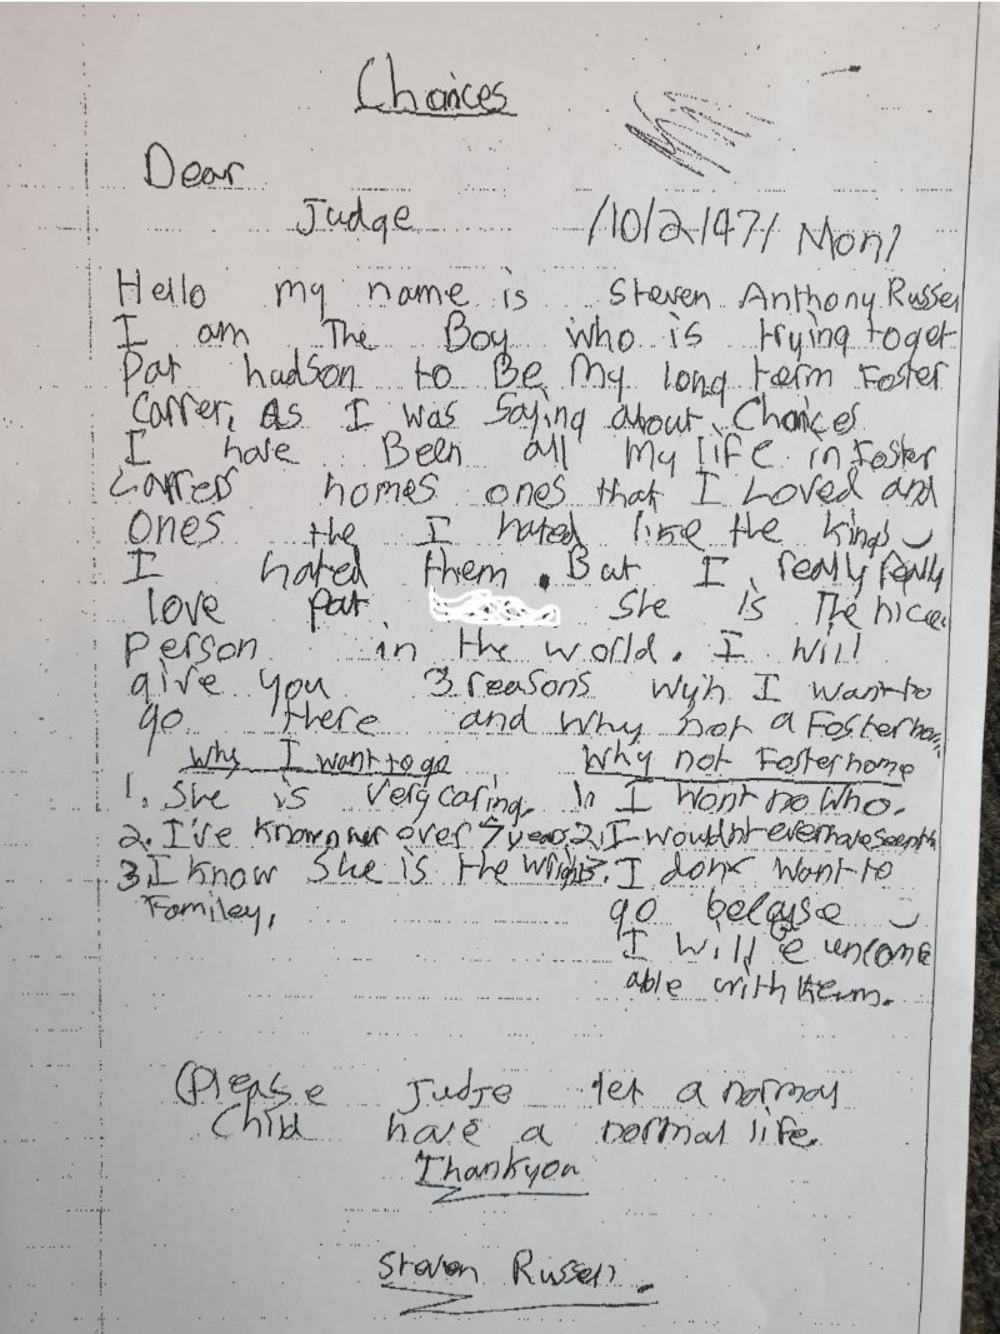 Chances
Dear
Judge /10/2/97/ Mon/
Hello my name is Steven Anthony Russel
I am The Boy who is trying toget
Pat hudson to Be My long term Foster
Carrer, As I was Saying about Chances
I have Been all My life in Foster
Carrers homes ones that I Loved and
ones the I hated like the kinds
I hated them. But I really really
love pat She is The nice
person in the world. I will
give you 3 reasons wyh I want to
go there and why not a Foster
Why I want to go Why not Foster home
1. She is very caring, 1. I Wont no Who.
2. I've known her over 7 years 2. I wouldnt even have seen
3. I know She is the Wright 3. I dont want to
Familey, go because
I will be uncome
able with them.
(Please Judje let a normal
Child have a normal life.
Thankyou
Steven Russell.